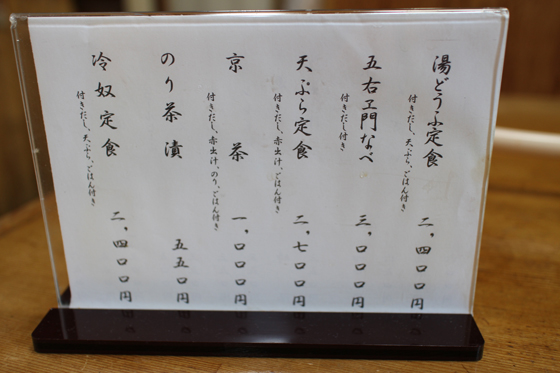 湯どうふ定食
付きだし、天ぷら、ごはん付き
二、四〇〇円
五右ヱ門なべ
付きだし付き
三、〇〇〇円
天ぷら定食
付きだし、赤出汁、ごはん付き
二、七〇〇円
京茶
付きだし、赤出汁、のり、ごはん付き
一、〇〇〇円
のり茶漬
五五〇円
冷奴定食
付きだし、天ぷら、ごはん付き
二、四〇〇円